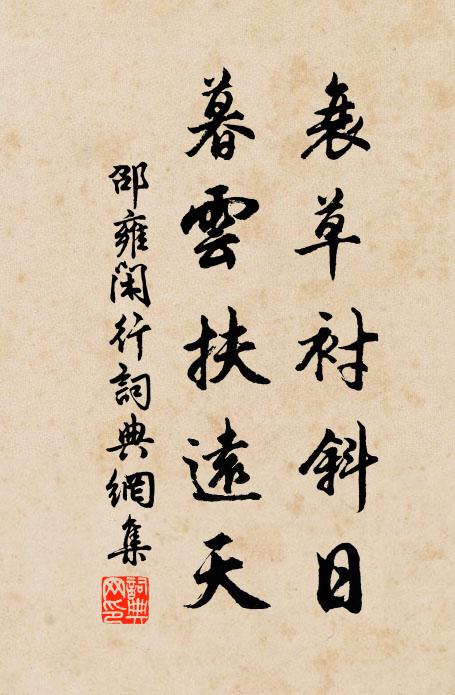 衰草衬斜日
暮雲扶遠天
邵雍閑行詞典網集
詞典網印